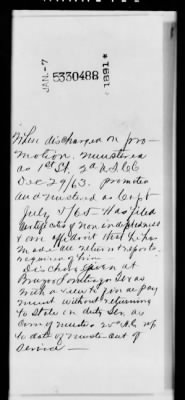 JAN-7
5330488
1891
When discharged on pro-
motion, mustered
as 1st Lt. 2d
Dec 29/63. promoted
and mustered as Capt
July 4/65 Has filed
certificates of non indebtedness
& an affidavit that he has
made all returns & reports
required of him.
Discharge given at
Brazos Santiago Texas
with a view to final pay
ment without returning
to State in duty Sen. as
Com. of muster 25" A.C. up
to date of muster-out of
service —